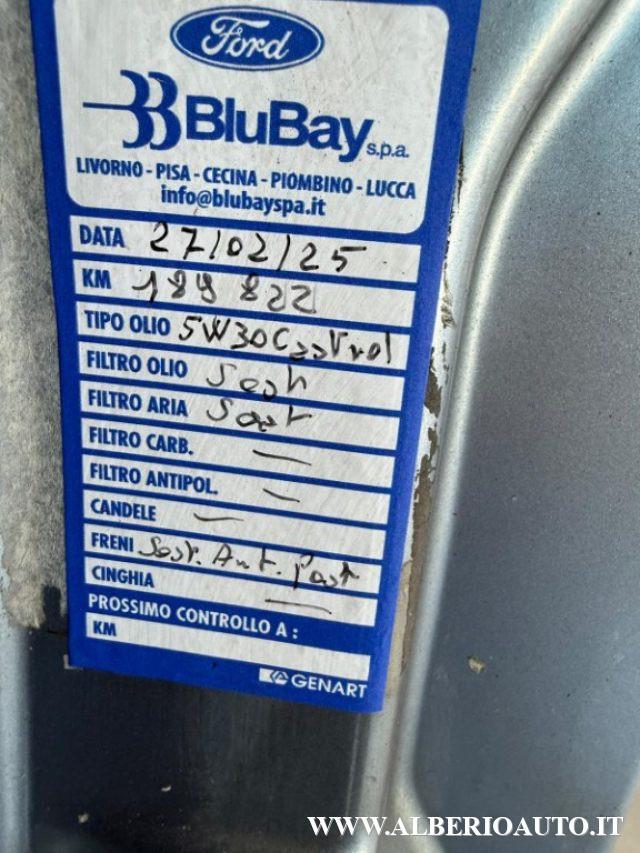 Ford
BluBay s.p.a.
LIVORNO - PISA - CECINA - PIOMBINO - LUCCA
info@blubayspa.it
DATA 27/02/25
KM 189 822
TIPO OLIO 5W30 Castrol
FILTRO OLIO Sost
FILTRO ARIA Sost
FILTRO CARB. —
FILTRO ANTIPOL. —
CANDELE —
FRENI Sost. Ant. Post
CINGHIA —
PROSSIMO CONTROLLO A :
KM
GENART
WWW.ALBERIOAUTO.IT